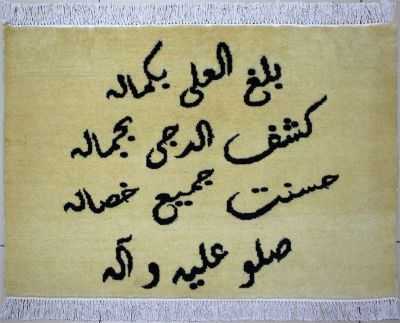 بلغ العلی بکماله
کشف الدجی بجماله
حسنت جمیع خصاله
صلو علیه و آله